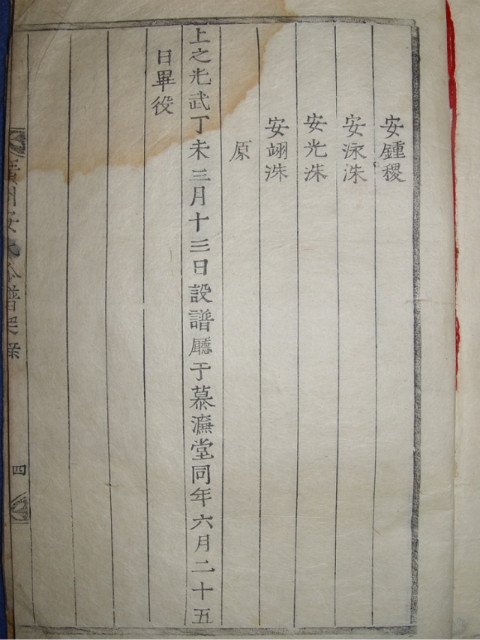 安鍾稷
安泳洙
安光洙
安翊洙
原
上之光武丁未三月十三日設譜廳于慕濂堂同年六月二十五
日畢役
州安
譜
四